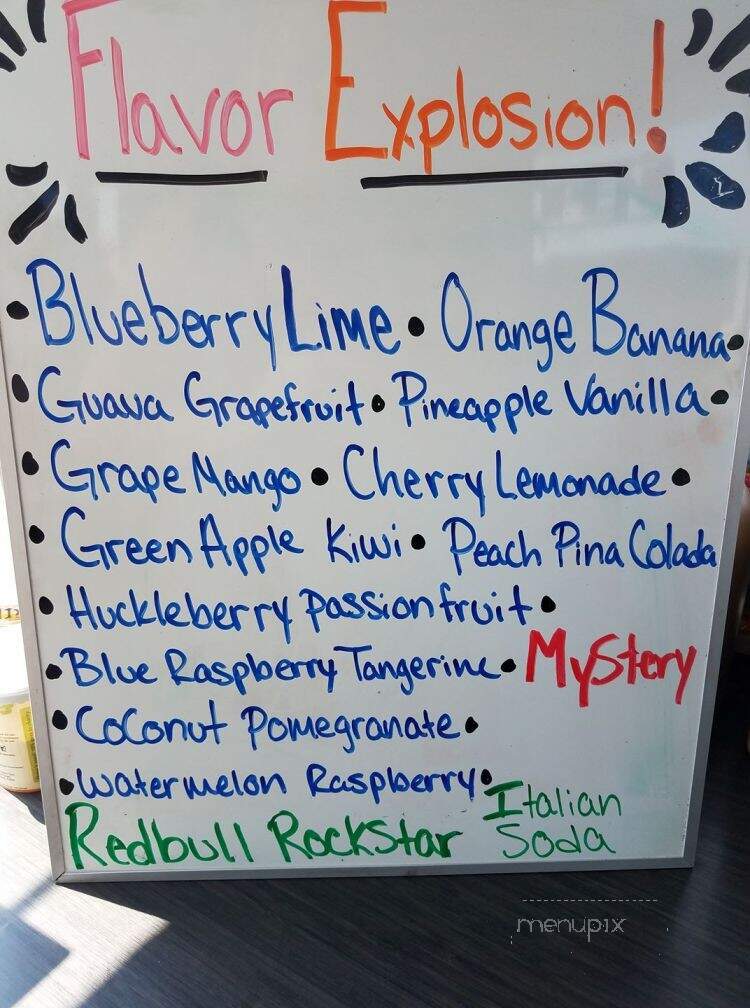 Flavor Explosion!
• Blueberry Lime • Orange Banana •
• Guava Grapefruit • Pineapple Vanilla •
• Grape Mango • Cherry Lemonade •
• Green Apple Kiwi • Peach Pina Colada
• Huckleberry passion fruit •
• Blue Raspberry Tangerine • MyStery
• Coconut Pomegranate •
• watermelon Raspberry •
Redbull RockStar Italian Soda
menupix